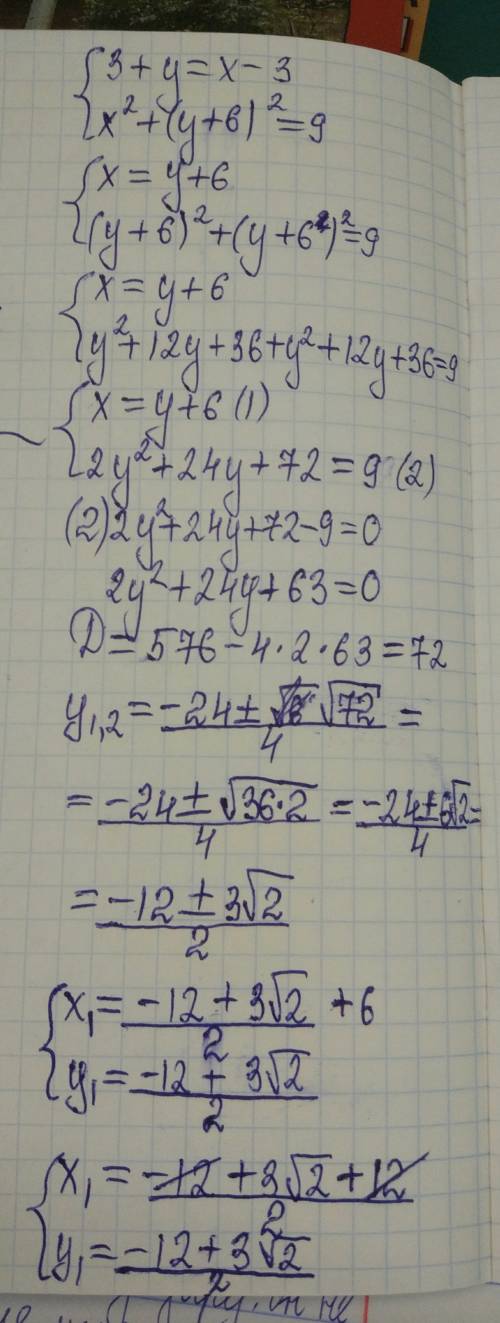 {3+y=x-3
{x²+(y+6)²=9
{x=y+6
{(y+6)²+(y+6)²=9
{x=y+6
{y²+12y+36+y²+12y+36=9
{x=y+6 (1)
{2y²+24y+72=9 (2)
(2) 2y²+24y+72-9=0
2y²+24y+63=0
D=576-4·2·63=72
y₁,₂=(-24±√72)/4=
=(-24±√(36·2))/4=(-24±6√2)/4=
=(-12±3√2)/2
{x₁=(-12+3√2)/2+6
{y₁=(-12+3√2)/2
{x₁=(-12+3√2+12)/2
{y₁=(-12+3√2)/2